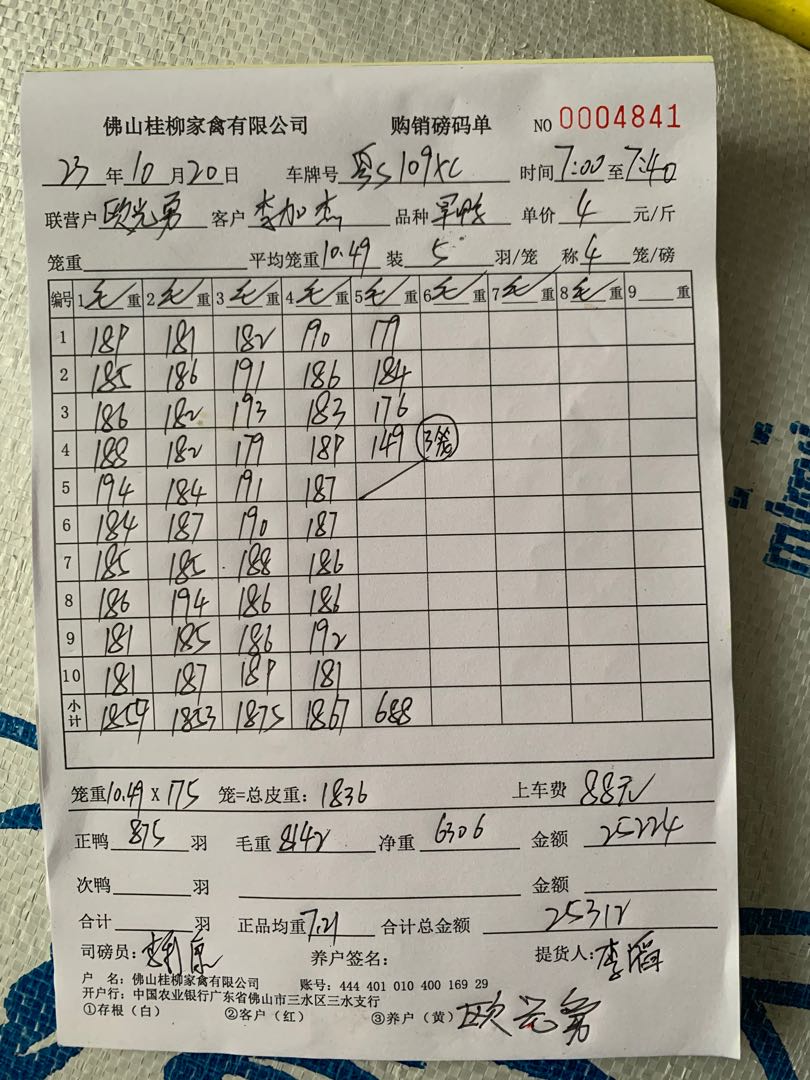 佛山桂柳家禽有限公司 购销磅码单 NO 0004841
23 年 10 月 20 日 车牌号 粤S109XC 时间 7:00 至 7:40
联营户 欧光勇 客户 李加杰 品种 旱鸭 单价 4 元/斤
笼重 平均笼重 10.49 装 5 羽/笼 称 4 笼/磅
编号 1 毛 重 2 毛 重 3 毛 重 4 毛 重 5 毛 重 6 毛 重 7 毛 重 8 毛 重 9 重
1 189 181 182 190 179
2 185 186 191 186 184
3 186 182 193 183 176
4 188 182 179 189 149 3笼
5 194 184 191 187
6 184 187 190 187
7 185 185 188 186
8 186 194 186 186
9 181 185 186 192
10 181 187 189 181
小计 1859 1853 1875 1867 688
笼重 10.49 X 175 笼=总皮重: 1836 上车费 88元
正鸭 875 羽 毛重 8142 净重 6306 金额 25224
次鸭 羽 金额
合计 羽 正品均重 7.21 合计总金额 25312
司磅员: 养户签名: 提货人: 李滔
户 名: 佛山桂柳家禽有限公司 账号: 444 401 010 400 169 29
开户行: 中国农业银行广东省佛山市三水区三水支行
①存根（白） ②客户（红） ③养户（黄） 欧光勇